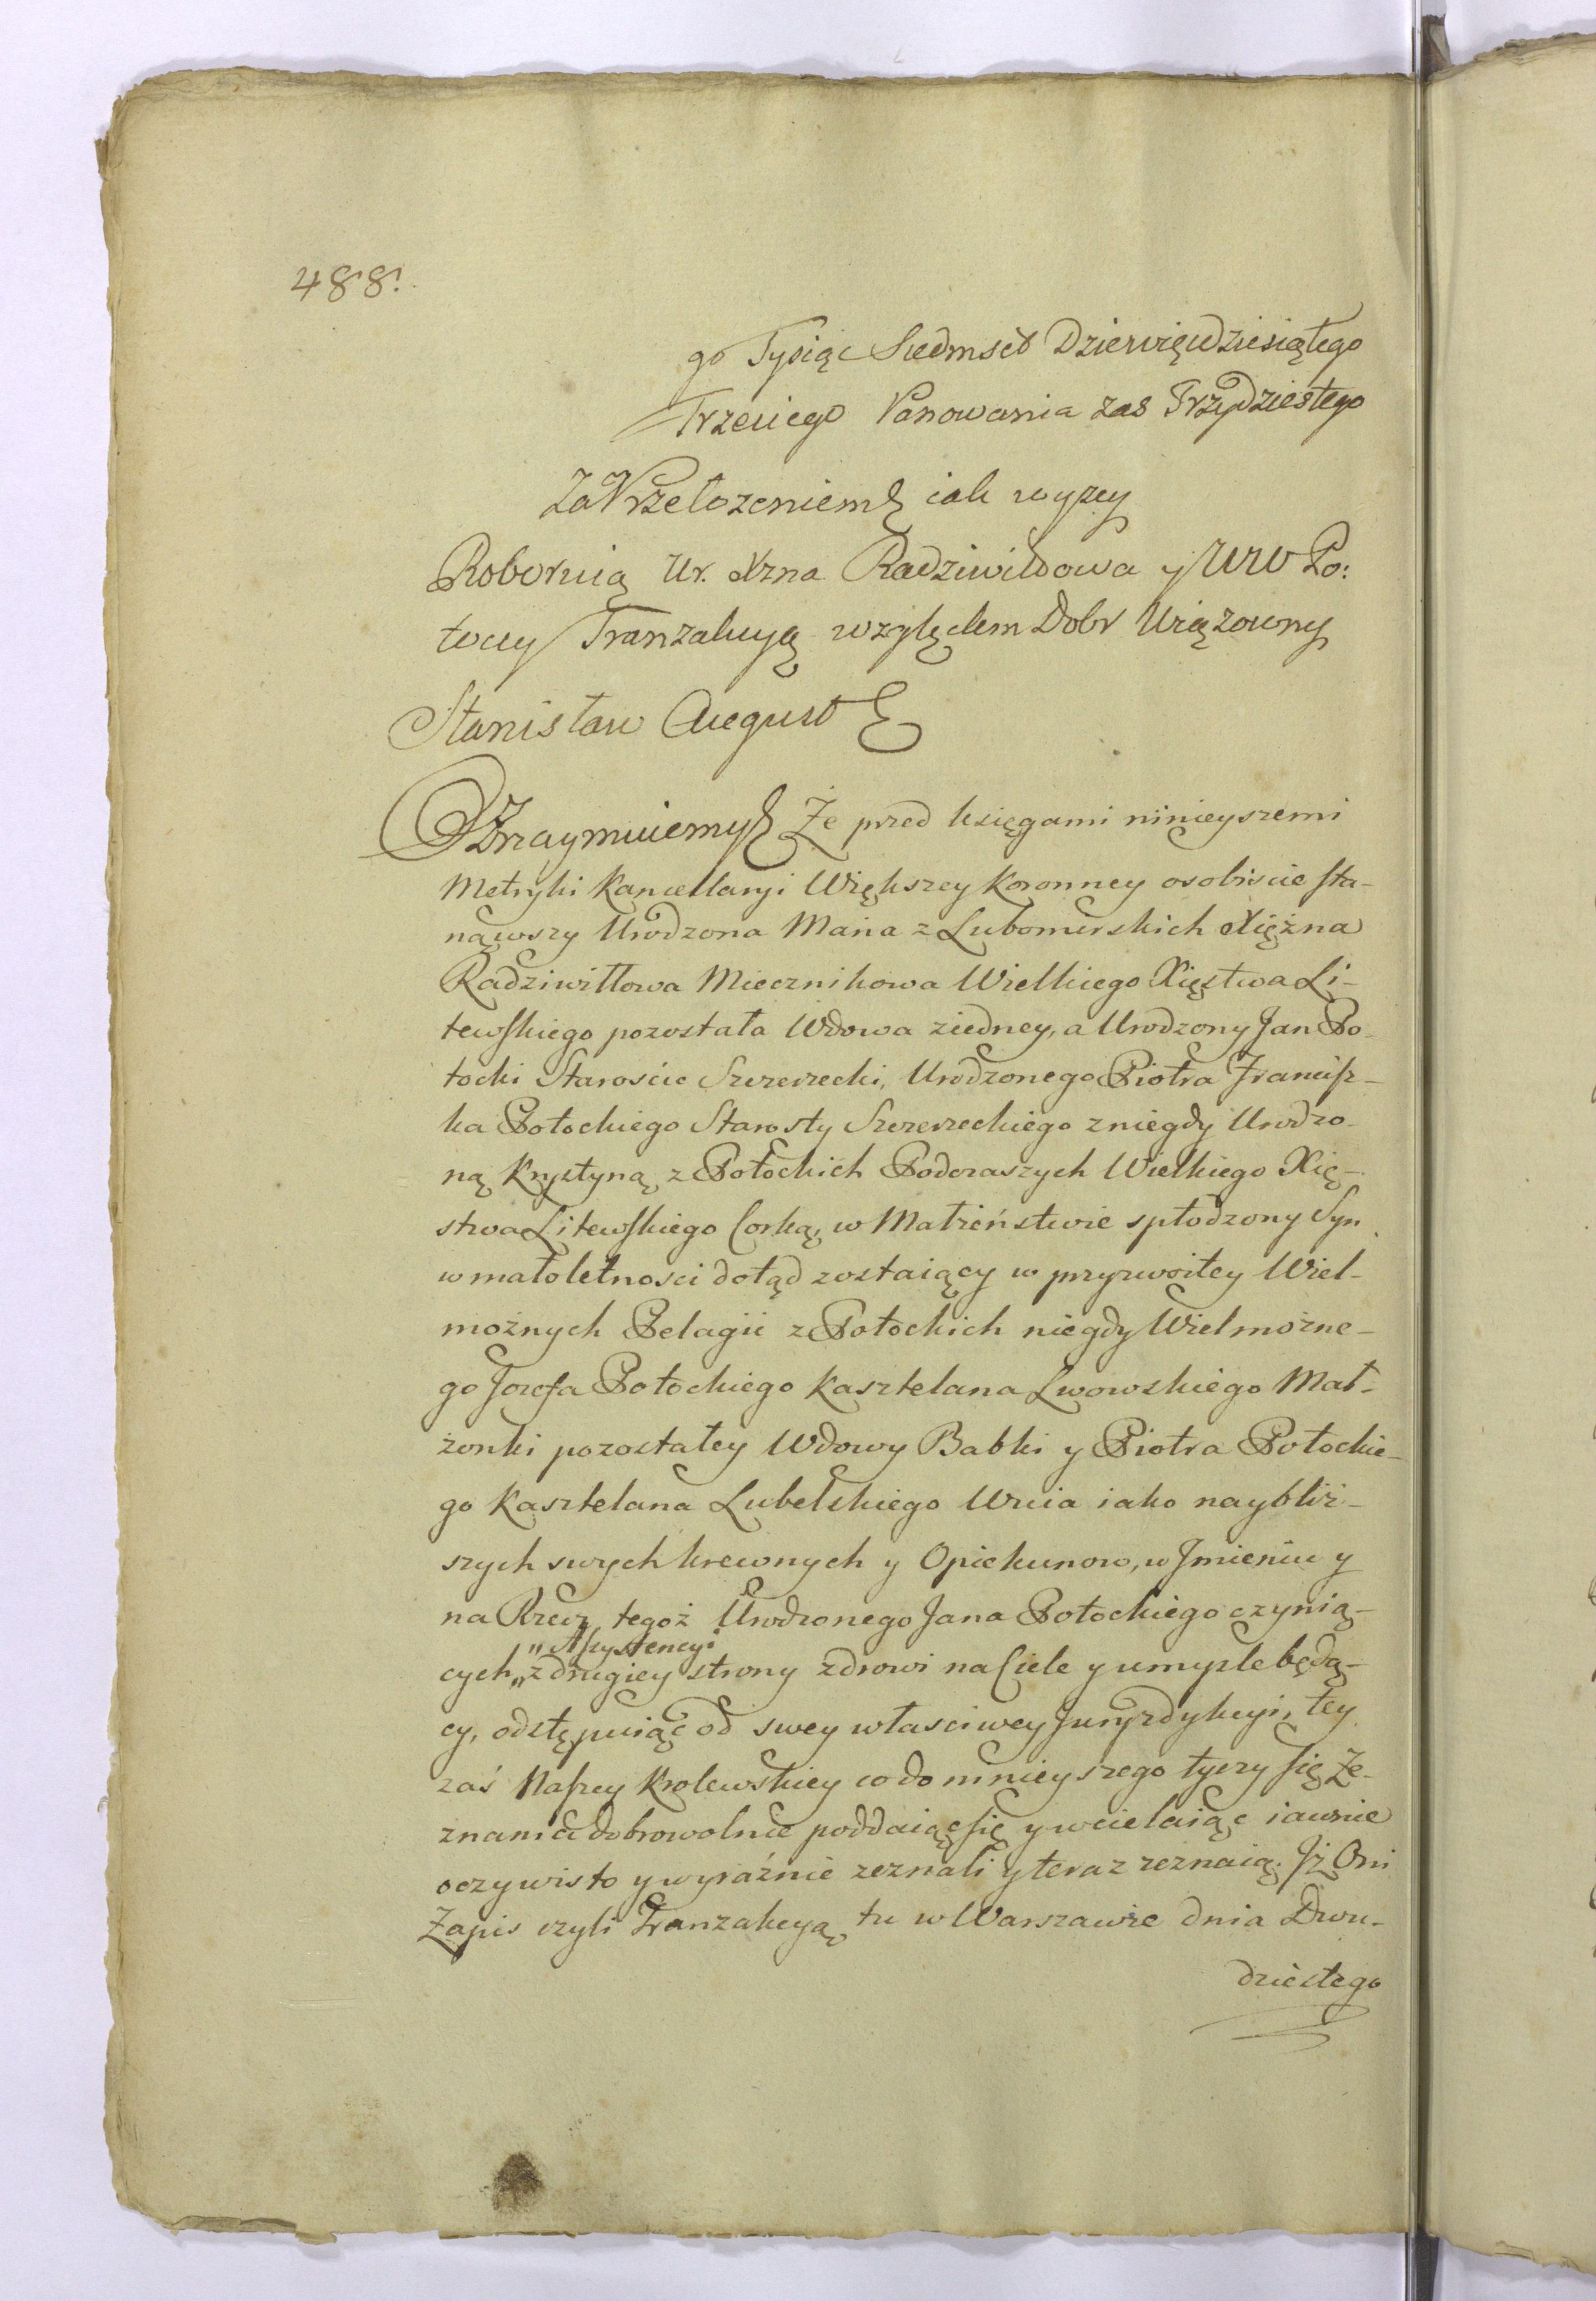 488.
go Tysiąc Siedmset Dziewięćdziesiątego
Trzeciego Panowania zas Trzydziestego
Za Przełozeniem iak wyzey
Roboruią Ur. Xzna Radziwiłłowa y WW Po:
toccy Tranzakcyą względem Dobr Wiązowny
Stanisław August
Oznaymuiemy Że przed księgami ninieyszemi
Metryki Kancellaryi Większey Koronney osobiscie sta-
nąwszy Urodzona Maria z Lubomirskich Xiężna
Radziwiłłowa Miecznikowa Wielkiego Xięstwa Li-
tewskiego pozostała Wdowa ziedney, a Urodzony Jan Po-
tocki Starościc Szczerzecki, Urodzonego Piotra Francisz-
ka Potockiego Starosty Szczerzeckiego z niegdy Urodzo-
ną Krystyną z Potockich Podczaszych Wielkiego Xię-
stwa Litewskiego Corką, w Małżeństwie spłodzony Syn
w małoletnosci dotąd zostaiący w przyzwoitey Wiel-
możnych Pelagii z Potockich niegdy Wielmożne-
go Jozefa Potockiego Kasztelana Lwowskiego Mał-
żonki pozostałey Wdowy Babki y Piotra Potockie-
go Kasztelana Lubelskiego Wuia iako naybliż-
szych swych krewnych y Opiekunow, w Jmieniu y
na Rzecz tegoż Urodzonego Jana Potockiego czynią-
„Assystencyi
cych „z drugiey strony zdrowi na Ciele y umysle będą-
cy, odstępuiąc od swey własciwey Juryzdykcyi, tey
zaś Naszey Krolewskiey co do ninieyszego tyczy się Ze-
znania dobrowolnie poddaiąc się y wcielaiąc iawnie
oczywisto y wyraźnie zeznali y teraz zeznaią. Jż Oni
Zapis czyli Tranzakcyą tu w Warszawie dnia Dwu-
dziestego